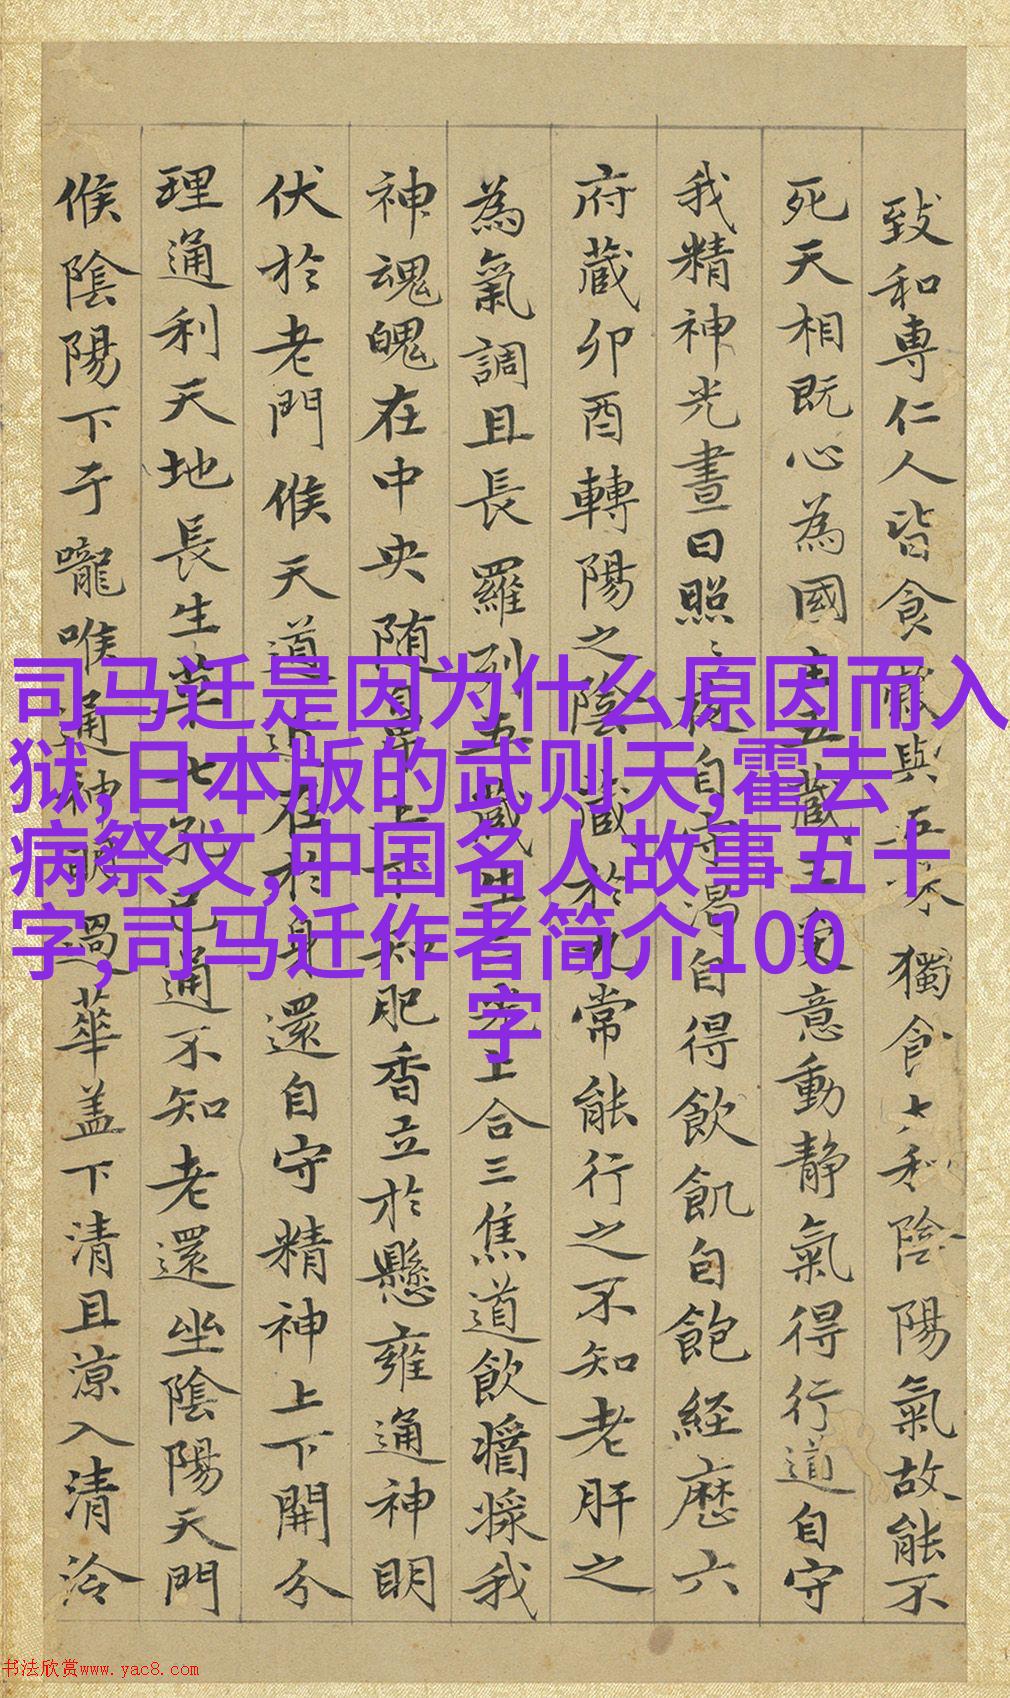 致和專仁人皆食與不獨食大和陰陽氣故能不
死天相既心為國五藏受意動静氣得行道自守
我精神光晝日照自守渴自得飲飢自飽經歷六
府藏卯酉轉陽之陰藏於九常能行之不知老肝之
為氣調且長羅列五藏生上合三焦道飲醬漿我
神魂魄在中央随上知肥香立於懸雍通神明
伏於老門候天道近在於身還自守精神上下開分
理通利天地長生草七孔已通不知老還坐陰陽天門
候陰陽下于嚨喉通神明過華盖下清且涼入清泠
司马迁是因为什么原因而入
狱,日本版的武则天,霍去
病祭文,中国名人故事五十
字,司马迁作者简介100
字
书法欣赏www.yac8.com